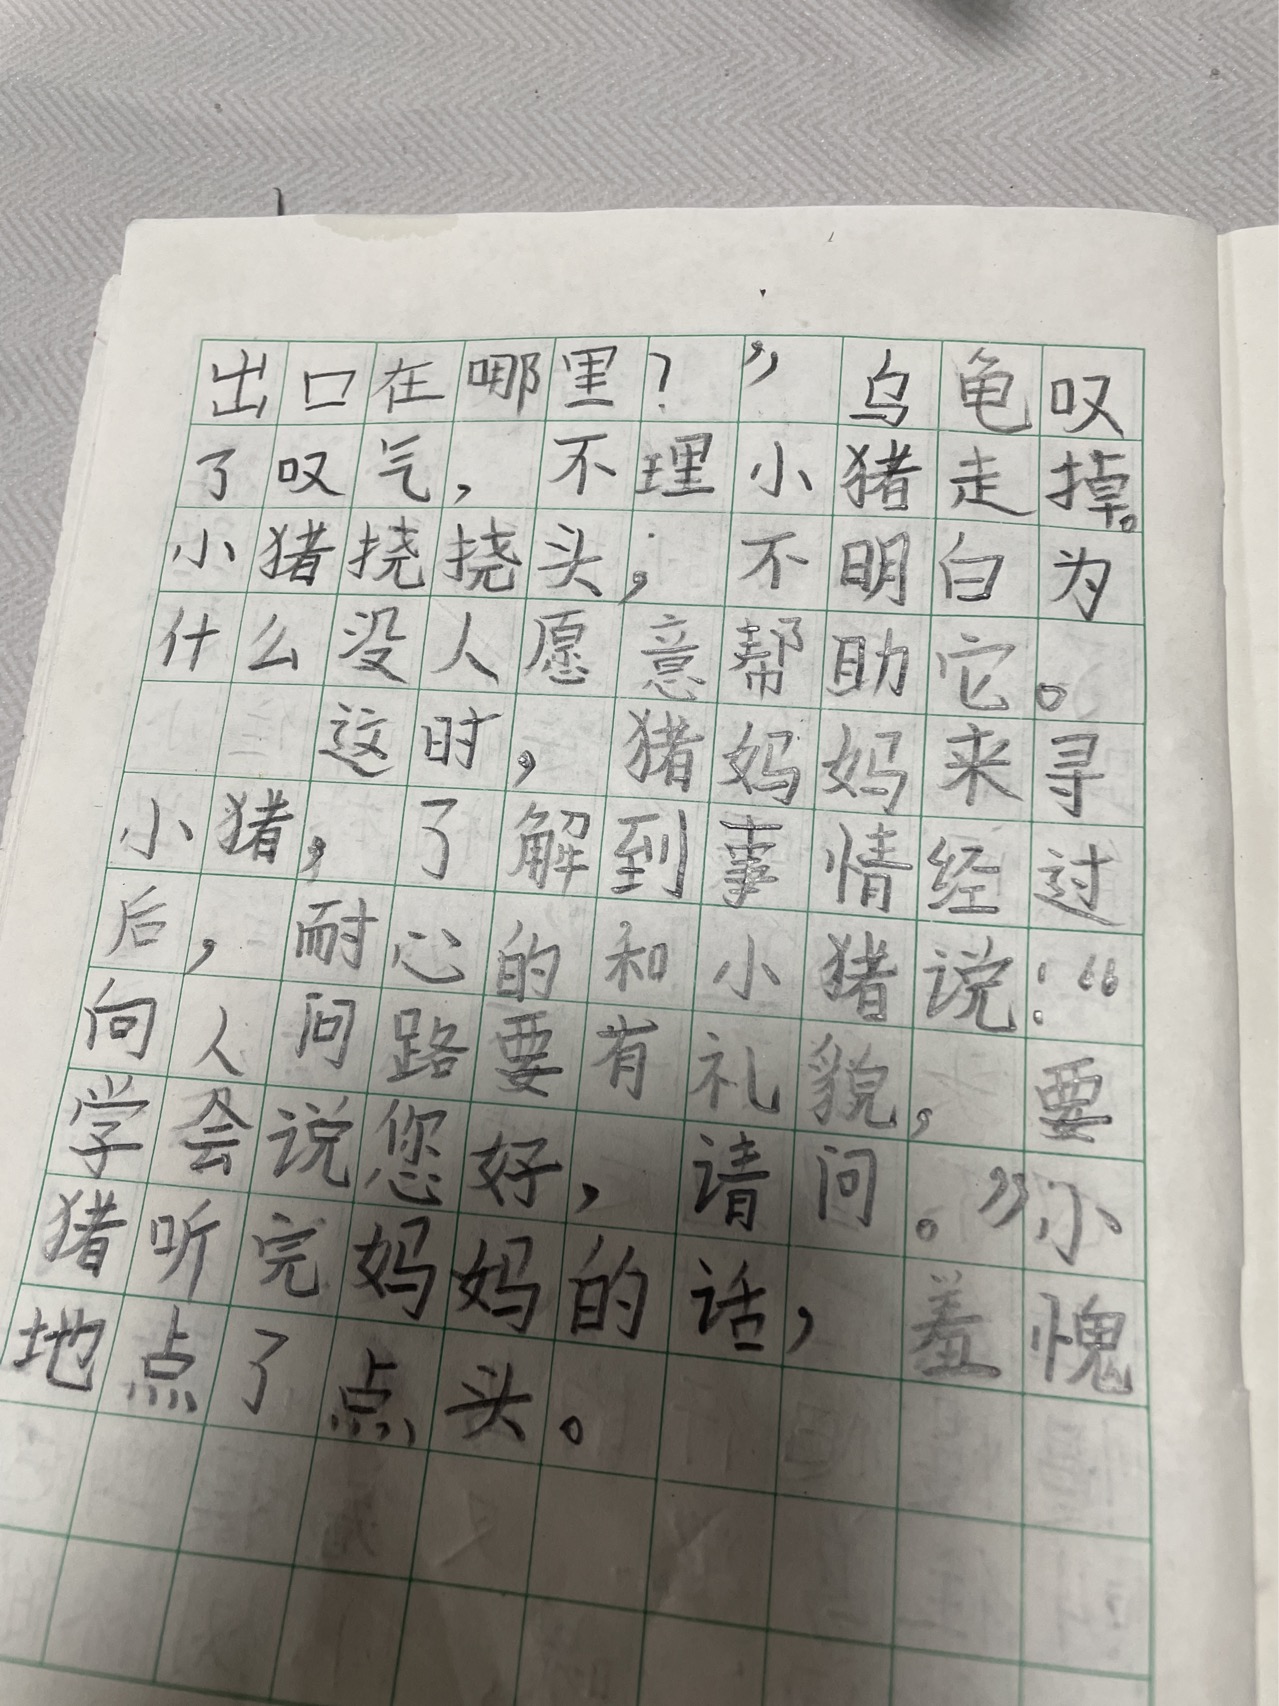 出口在哪里？”乌龟叹
了叹气，不理小猪走掉。
小猪挠挠头，不明白为
什么没人愿意帮助它。
这时，猪妈妈来寻
小猪，了解到事情经过
后，耐心的和小猪说：“
向人问路要有礼貌，要
学会说您好，请问。”小
猪听完妈妈的话，羞愧
地点了点头。